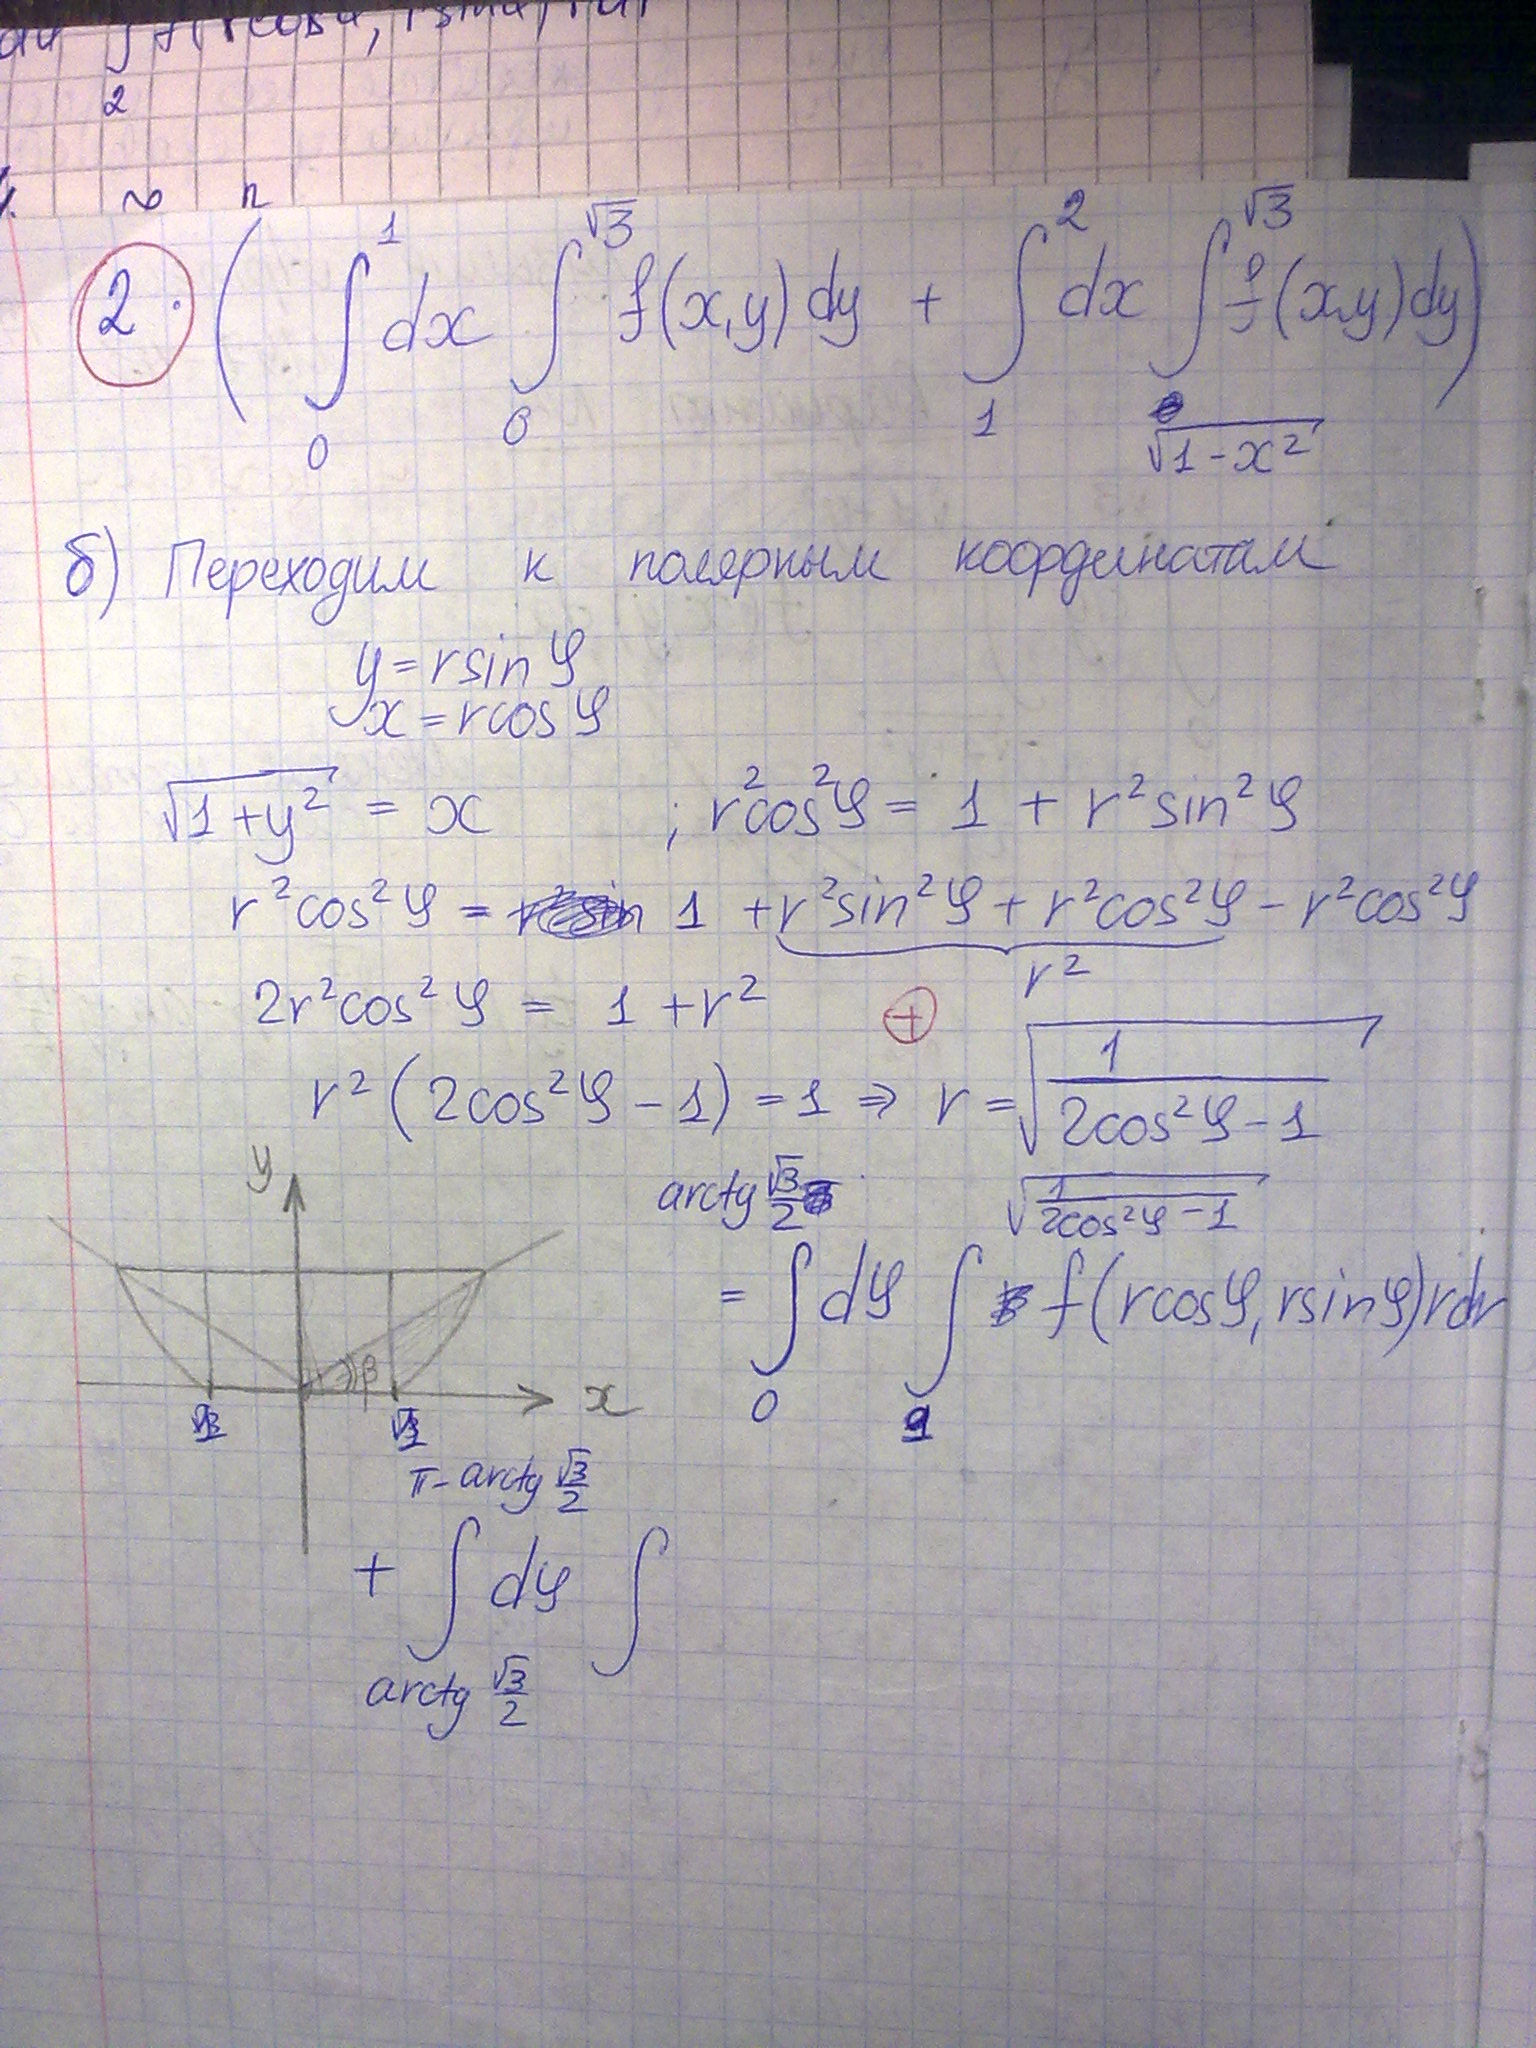 2
2·( ∫₀¹ dx ∫₀^√3 f(x,y) dy + ∫₁² dx ∫_√(1-x²)^√3 f(x,y) dy )
б) Переходим к полярным координатам
y = r sin φ
x = r cos φ
√(1+y²) = x ; r²cos²φ = 1 + r²sin²φ
r²cos²φ = 1 + r²sin²φ + r²cos²φ - r²cos²φ
r²
2r²cos²φ = 1 + r² +
r²(2cos²φ - 1) = 1 ⇒ r = √(1/(2cos²φ - 1))
y
= ∫₀^(arctg √3/2) dφ ∫₁^√(1/(2cos²φ-1)) f(r cos φ, r sin φ) r dr
β
x
+ ∫_(arctg √3/2)^(π - arctg √3/2) dφ ∫